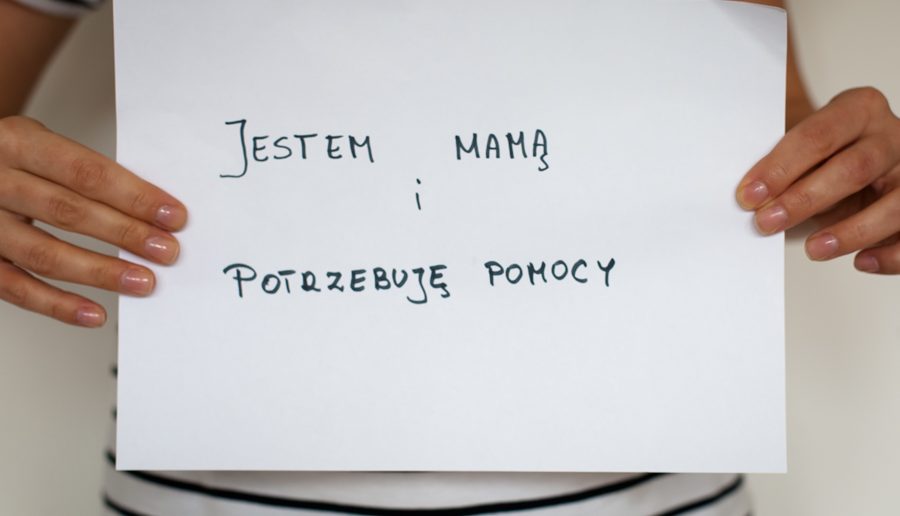 JESTEM MAMĄ
i
POTRZEBUJĘ POMOCY